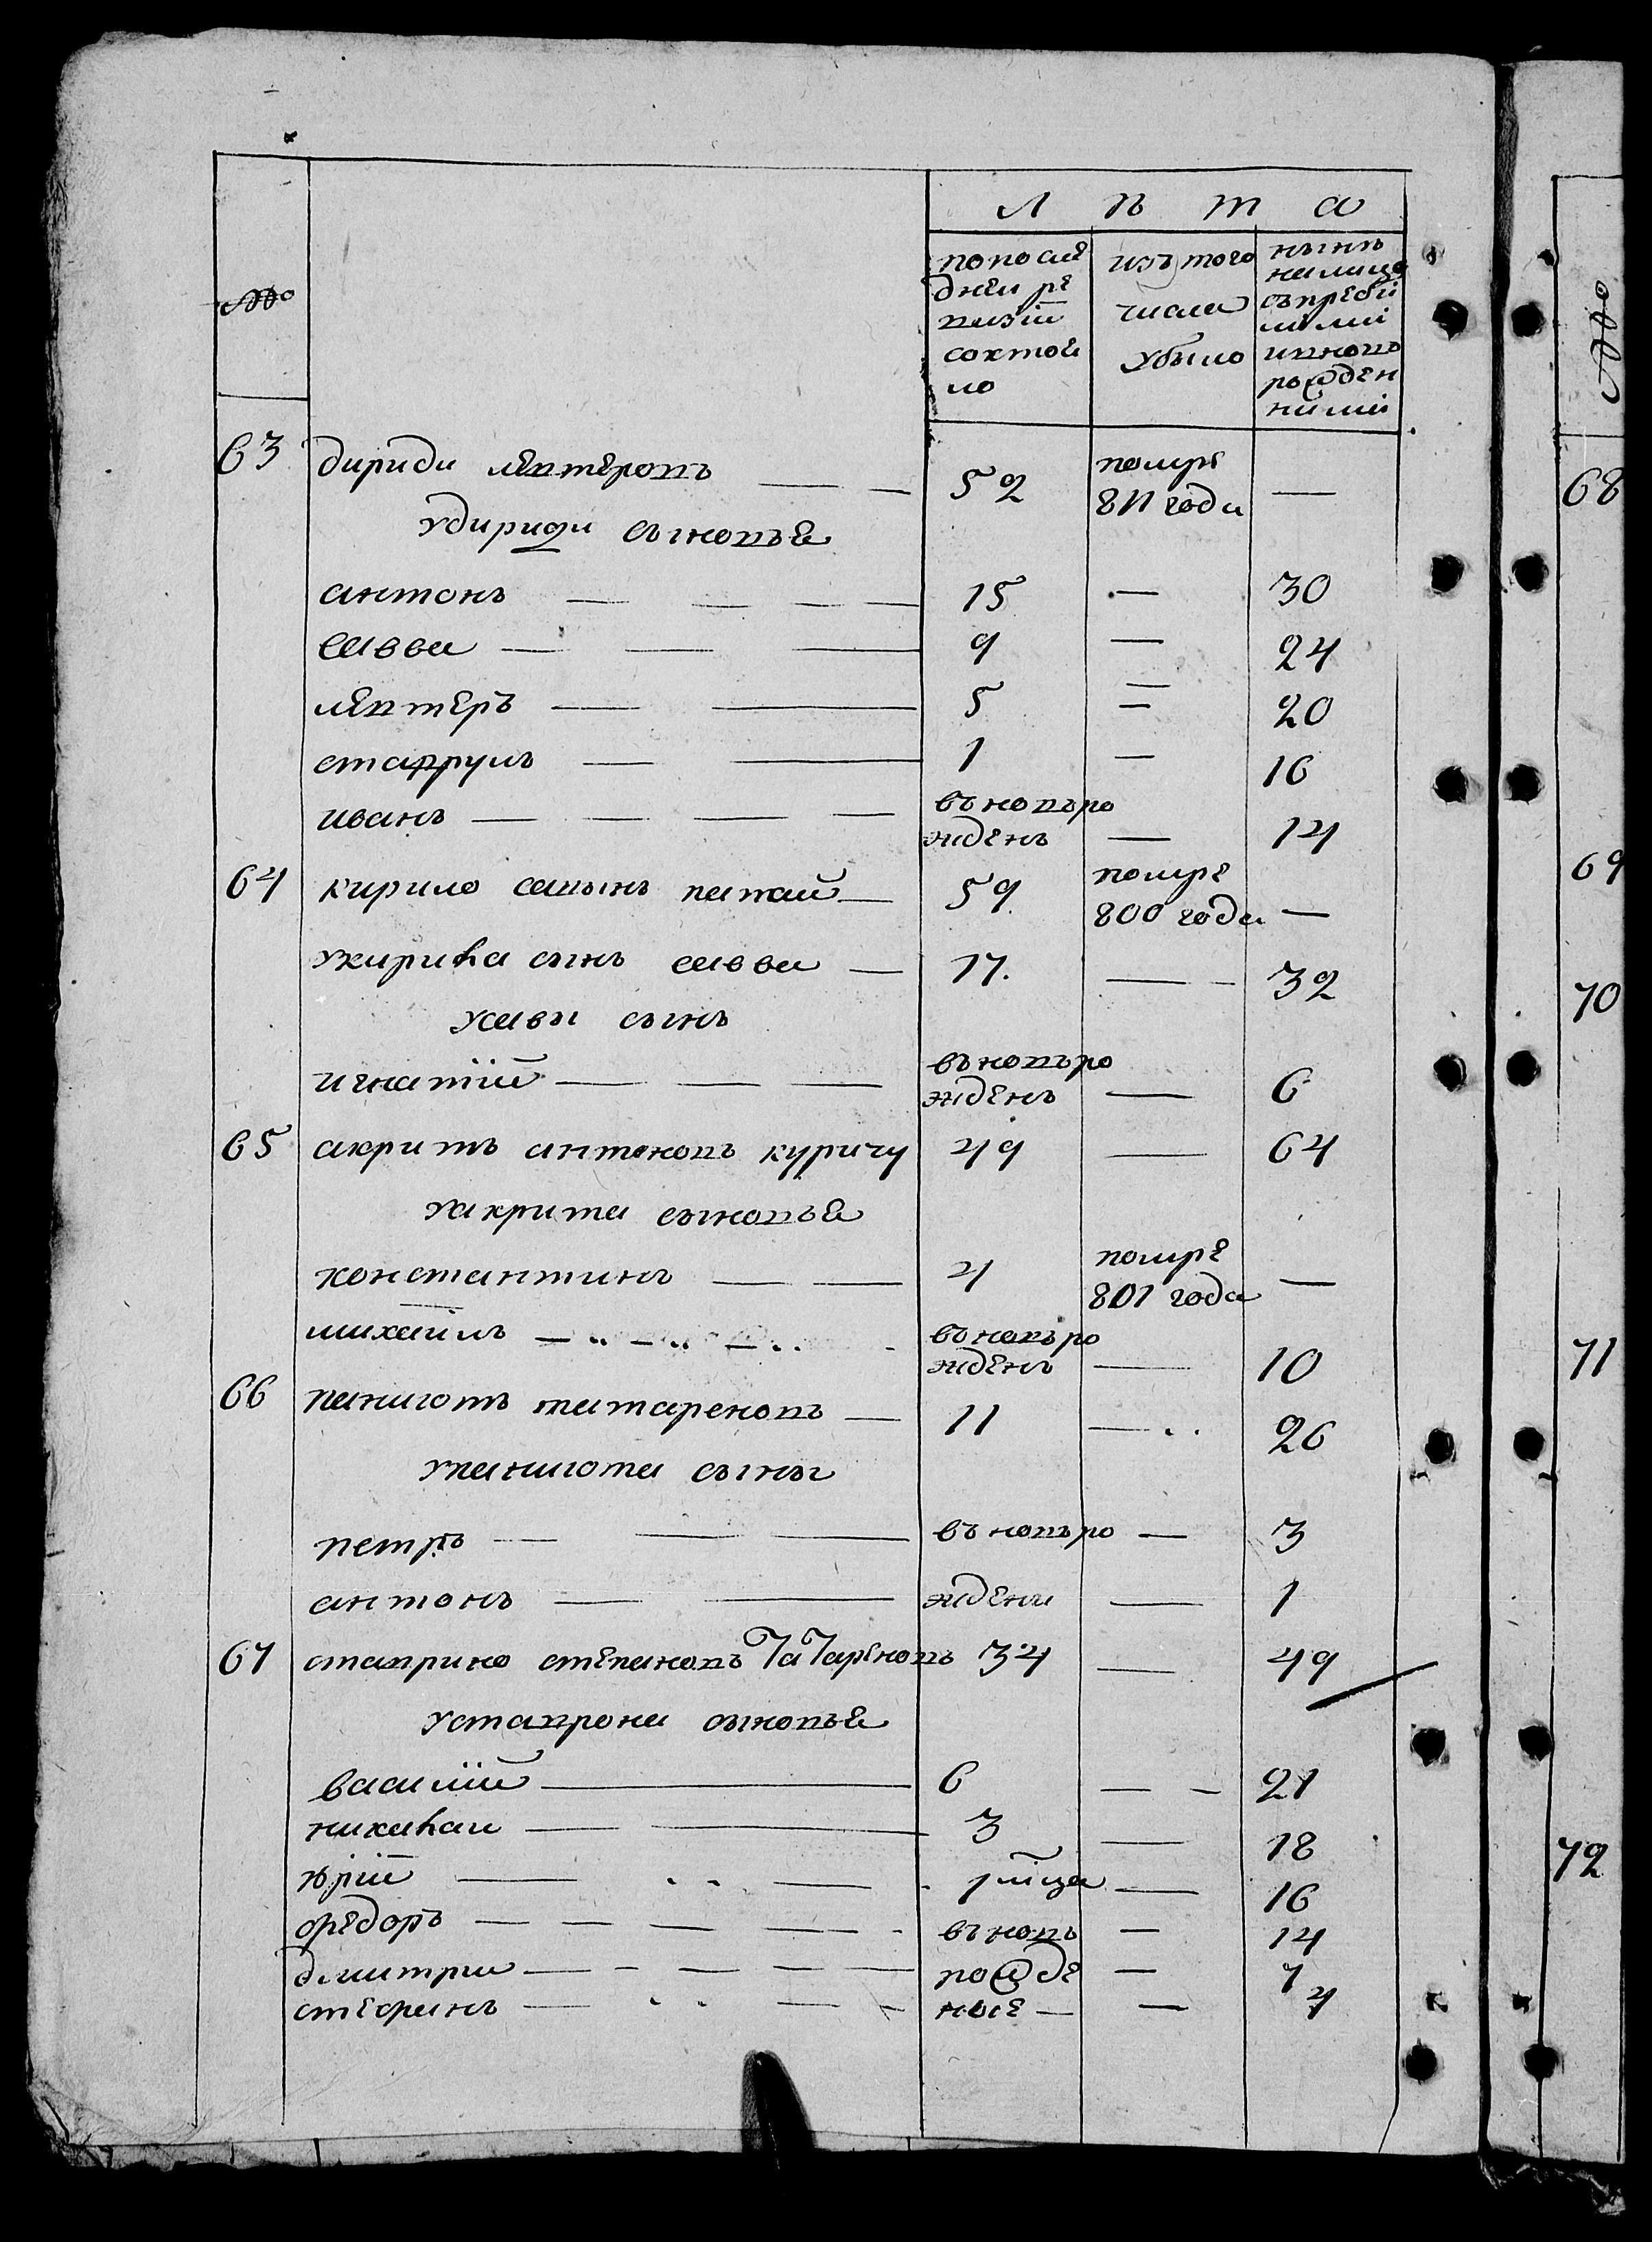 Л ѣ т а
№
по после изъ того нынѣ
дней ре числа на лицо
визіи убыло съ прибы
состоя лыми
ло и вновь
рожден
ными
63 дириди левтеровъ — — 52 помре 811 года —
у дириди сыновья
антонъ — — — — 15 — 30
савва — — — 9 — 24
левтеръ — — 5 — 20
ставрулъ — — 1 — 16
иванъ — — — — въновьро
жденъ — 14
64 кирило савынъ патай — 59 помре 800 года —
у кирила сынъ савва — 17. — 32
у савы сынъ
игнатій — — — въновьро
жденъ — 6
65 акритъ антоновъ куричу 49 — 64
у акрита сыновья
константинъ — — 4 помре 801 года —
михаилъ — „ — „ — „ въновьро
жденъ — 10
66 паниготъ татареновъ — 11 — 26
у панигота сыны
петръ — — — въновьро — 3
антонъ — — ждени — 1
67 ставрино степановъ татареновъ 34 — 49
у ставрона сыновья
василій — 6 — 21
николаи — — 3 — 18
юрій — — 1 мца — 16
федоръ — — — — въновь — 14
дмитри — — — — рожде — 7
стефанъ — — — ные — — 4
№
68
69
70
71
72